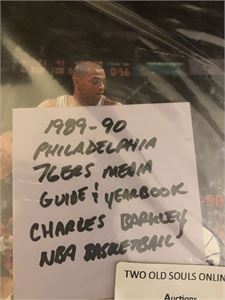 1989-90
PHILADELPHIA
76ERS MEDIA
GUIDE & YEARBOOK
CHARLES BARKLEY
NBA BASKETBALL
TWO OLD SOULS ONLIN
Auctions